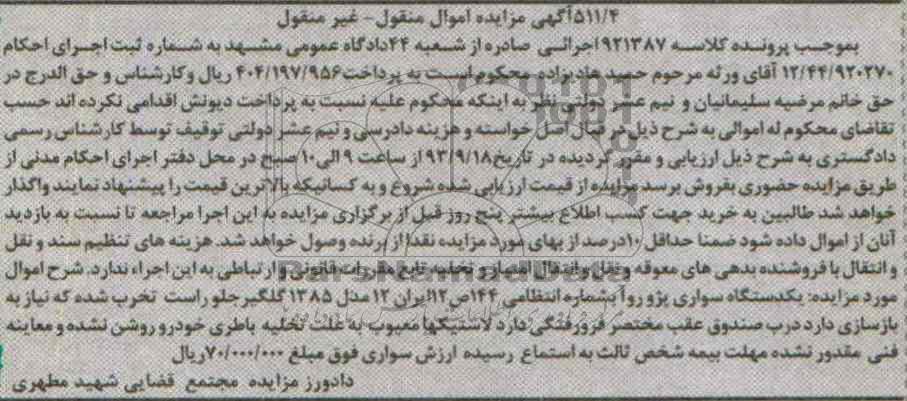 ۵۱۱/۴آگهی مزایده اموال منقول- غیر منقول
بموجب پرونده کلاسه ۹۲۱۳۸۷اجرائی صادره از شعبه ۴۴دادگاه عمومی مشهد به شماره ثبت اجرای احکام
۱۲/۴۴/۹۲۰۲۷۰ آقای ورثه مرحوم حمید هادیزاده محکوم است به پرداخت۴۰۴/۱۹۷/۹۵۶ ریال وکارشناس و حق الدرج در
حق خانم مرضیه سلیمانیان و نیم عشر دولتی نظر به اینکه محکوم علیه نسبت به پرداخت دیونش اقدامی نکرده اند حسب
تقاضای محکوم له اموالی به شرح ذیل در قبال اصل خواسته و هزینه دادرسی و نیم عشر دولتی توقیف توسط کارشناس رسمی
دادگستری به شرح ذیل ارزیابی و مقرر گردیده در تاریخ۹۳/۹/۱۸ از ساعت ۹ الی۱۰ صبح در محل دفتر اجرای احکام مدنی از
طریق مزایده حضوری بفروش برسد مزایده از قیمت ارزیابی شده شروع و به کسانیکه بالاترین قیمت را پیشنهاد نمایند واگذار
خواهد شد طالبین به خرید جهت کسب اطلاع بیشتر پنج روز قبل از برگزاری مزایده به این اجرا مراجعه تا نسبت به بازدید
آنان از اموال داده شود ضمنا حداقل ۱۰درصد از بهای مورد مزایده نقدا از برنده وصول خواهد شد. هزینه های تنظیم سند و نقل
و انتقال با فروشنده بدهی های معوقه و نقل و انتقال امتیاز و تخلیه تابع مقررات قانونی و ارتباطی به این اجراء ندارد. شرح اموال
مورد مزایده: یکدستگاه سواری پژو روآ بشماره انتظامی ۱۴۴ص۱۲ایران ۱۲ مدل ۱۳۸۵ گلگیر جلو راست تخرب شده که نیاز به
بازسازی دارد درب صندوق عقب مختصر فرورفتگی دارد لاستیکها معیوب به علت تخلیه باطری خودرو روشن نشده و معاینه
فنی مقدور نشده مهلت بیمه شخص ثالث به استماع رسیده ارزش سواری فوق مبلغ ۷۰/۰۰۰/۰۰۰ریال
دادورز مزایده مجتمع قضایی شهید مطهری